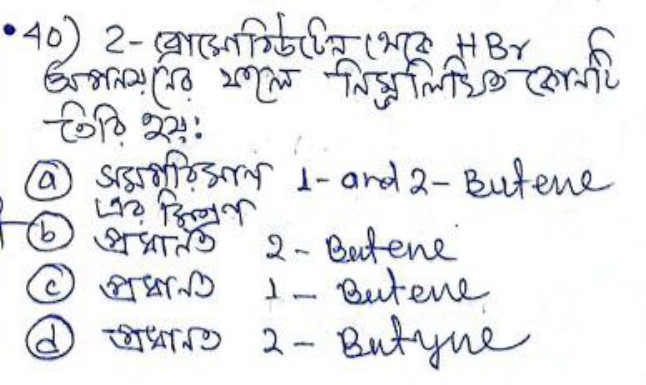 40) 2-ব্রোমোবিউটেন থেকে HBr
অপনয়নের ফলে নিম্নলিখিত কোনটি
তৈরি হয়:
(a) সমপরিমাণ 1- and 2- Butene
এর মিশ্রণ
(b) প্রধানত 2- Butene
(c) প্রধানত 1- Butene
(d) প্রধানত 2- Butyne